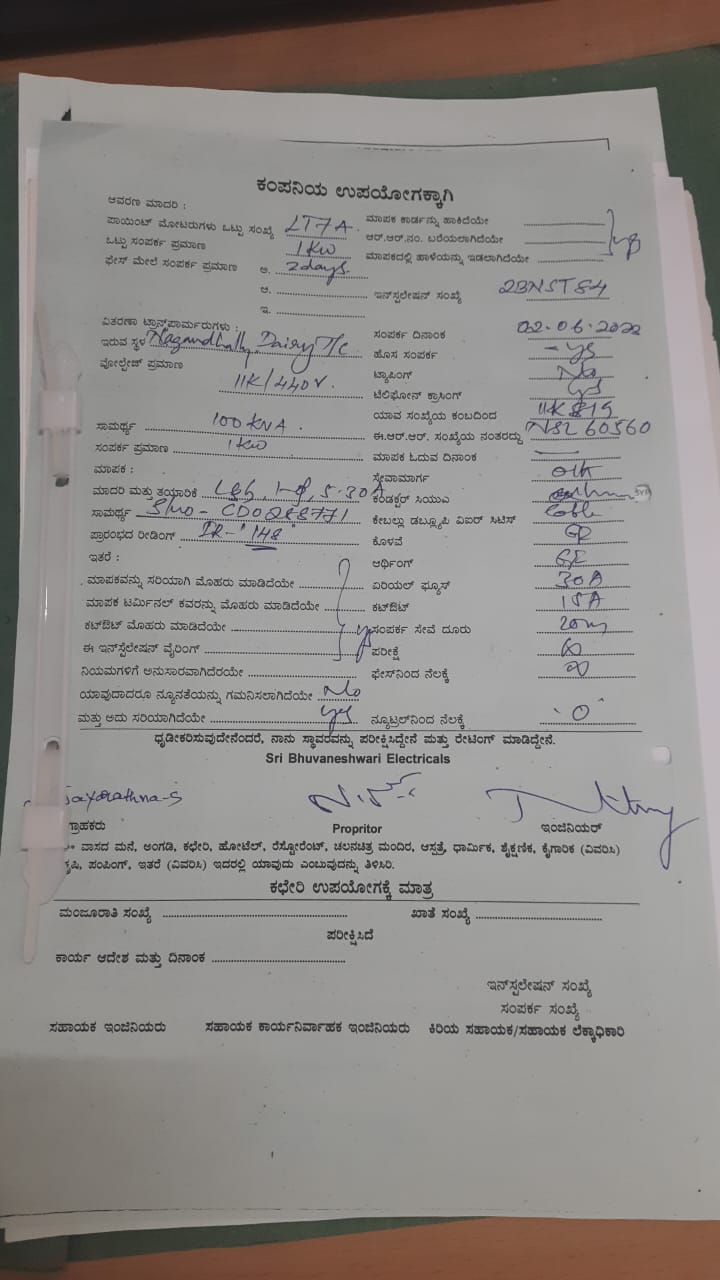 ಕಂಪನಿಯ ಉಪಯೋಗಕ್ಕಾಗಿ
ಆವರಣ ಮಾದರಿ :
ಪಾಯಿಂಟ್ ಮೋಟರುಗಳು ಒಟ್ಟು ಸಂಖ್ಯೆ LT7A. ಮಾಪಕ ಕಾರ್ಡನ್ನು ಹಾಕಿದೆಯೇ
ಒಟ್ಟು ಸಂಪರ್ಕ ಪ್ರಮಾಣ 1kw ಆರ್.ಆರ್.ನಂ. ಬರೆಯಲಾಗಿದೆಯೇ
ಫೇಸ್ ಮೇಲೆ ಸಂಪರ್ಕ ಪ್ರಮಾಣ ಅ. 2days. ಮಾಪಕದಲ್ಲಿ ಹಾಳೆಯನ್ನು ಇಡಲಾಗಿದೆಯೇ
ಆ. ಇನ್‌ಸ್ಟಲೇಷನ್ ಸಂಖ್ಯೆ 2BNST84
ಇ.
ವಿತರಣಾ ಟ್ರಾನ್ಸ್‌ಫಾರ್ಮರುಗಳು : ಸಂಪರ್ಕ ದಿನಾಂಕ 02.06.2022
ಇರುವ ಸ್ಥಳ Dairy T/c ಹೊಸ ಸಂಪರ್ಕ - yes
ವೋಲ್ಟೇಜ್ ಪ್ರಮಾಣ 11K/440V. ಟ್ಯಾಪಿಂಗ್ No
ಟೆಲಿಫೋನ್ ಕ್ರಾಸಿಂಗ್ yes
ಯಾವ ಸಂಖ್ಯೆಯ ಕಂಬದಿಂದ
ಸಾಮರ್ಥ್ಯ 100 KVA. ಈ.ಆರ್.ಆರ್. ಸಂಖ್ಯೆಯ ನಂತರದ್ದು NSL 60560
ಸಂಪರ್ಕ ಪ್ರಮಾಣ 1kw ಮಾಪಕ ಓದುವ ದಿನಾಂಕ
ಮಾಪಕ : ಸೇವಾಮಾರ್ಗ
ಮಾದರಿ ಮತ್ತು ತಯಾರಿಕೆ 5-30A ಕಂಡಕ್ಟರ್ ಸಿಯುಎ
ಸಾಮರ್ಥ್ಯ Slno - CD0288771 ಕೇಬಲ್ಲು ಡಬ್ಲ್ಯೂಪಿ ವಿಐರ್ ಸಿಟಿಸ್ Cable
ಪ್ರಾರಂಭದ ರೀಡಿಂಗ್ IR - "148" ಕೊಳವೆ GP
ಇತರೆ : ಆರ್ಥಿಂಗ್ GE
ಮಾಪಕವನ್ನು ಸರಿಯಾಗಿ ಮೊಹರು ಮಾಡಿದೆಯೇ ಏರಿಯಲ್ ಫ್ಯೂಸ್ 30A
ಮಾಪಕ ಟರ್ಮಿನಲ್ ಕವರನ್ನು ಮೊಹರು ಮಾಡಿದೆಯೇ ಕಟ್‌ಔಟ್ 15A
ಕಟ್‌ಔಟ್ ಮೊಹರು ಮಾಡಿದೆಯೇ ಸಂಪರ್ಕ ಸೇವೆ ದೂರು 20m
ಈ ಇನ್‌ಸ್ಟಲೇಷನ್ ವೈರಿಂಗ್ ಪರೀಕ್ಷೆ ∞
ನಿಯಮಗಳಿಗೆ ಅನುಸಾರವಾಗಿದೆರಯೇ ಫೇಸ್‌ನಿಂದ ನೆಲಕ್ಕೆ ∞
ಯಾವುದಾದರೂ ನ್ಯೂನತೆಯನ್ನು ಗಮನಿಸಲಾಗಿದೆಯೇ No
ಮತ್ತು ಅದು ಸರಿಯಾಗಿದೆಯೇ yes ನ್ಯೂಟ್ರಲ್‌ನಿಂದ ನೆಲಕ್ಕೆ "0"
ಧೃಡೀಕರಿಸುವುದೇನೆಂದರೆ, ನಾನು ಸ್ಥಾವರವನ್ನು ಪರೀಕ್ಷಿಸಿದ್ದೇನೆ ಮತ್ತು ರೇಟಿಂಗ್ ಮಾಡಿದ್ದೇನೆ.
Sri Bhuvaneshwari Electricals
ಗ್ರಾಹಕರು Propritor ಇಂಜಿನಿಯರ್
ವಾಸದ ಮನೆ, ಅಂಗಡಿ, ಕಛೇರಿ, ಹೋಟೆಲ್, ರೆಸ್ಟೋರೆಂಟ್, ಚಲನಚಿತ್ರ ಮಂದಿರ, ಆಸ್ಪತ್ರೆ, ಧಾರ್ಮಿಕ, ಶೈಕ್ಷಣಿಕ, ಕೈಗಾರಿಕ (ವಿವರಿಸಿ)
ಕೃಷಿ, ಪಂಪಿಂಗ್, ಇತರೆ (ವಿವರಿಸಿ) ಇದರಲ್ಲಿ ಯಾವುದು ಎಂಬುವುದನ್ನು ತಿಳಿಸಿರಿ.
ಕಛೇರಿ ಉಪಯೋಗಕ್ಕೆ ಮಾತ್ರ
ಮಂಜೂರಾತಿ ಸಂಖ್ಯೆ ಖಾತೆ ಸಂಖ್ಯೆ
ಪರೀಕ್ಷಿಸಿದೆ
ಕಾರ್ಯ ಆದೇಶ ಮತ್ತು ದಿನಾಂಕ
ಇನ್‌ಸ್ಟಲೇಷನ್ ಸಂಖ್ಯೆ
ಸಂಪರ್ಕ ಸಂಖ್ಯೆ
ಸಹಾಯಕ ಇಂಜಿನಿಯರು ಸಹಾಯಕ ಕಾರ್ಯನಿರ್ವಾಹಕ ಇಂಜಿನಿಯರು ಕಿರಿಯ ಸಹಾಯಕ/ಸಹಾಯಕ ಲೆಕ್ಕಾಧಿಕಾರಿ